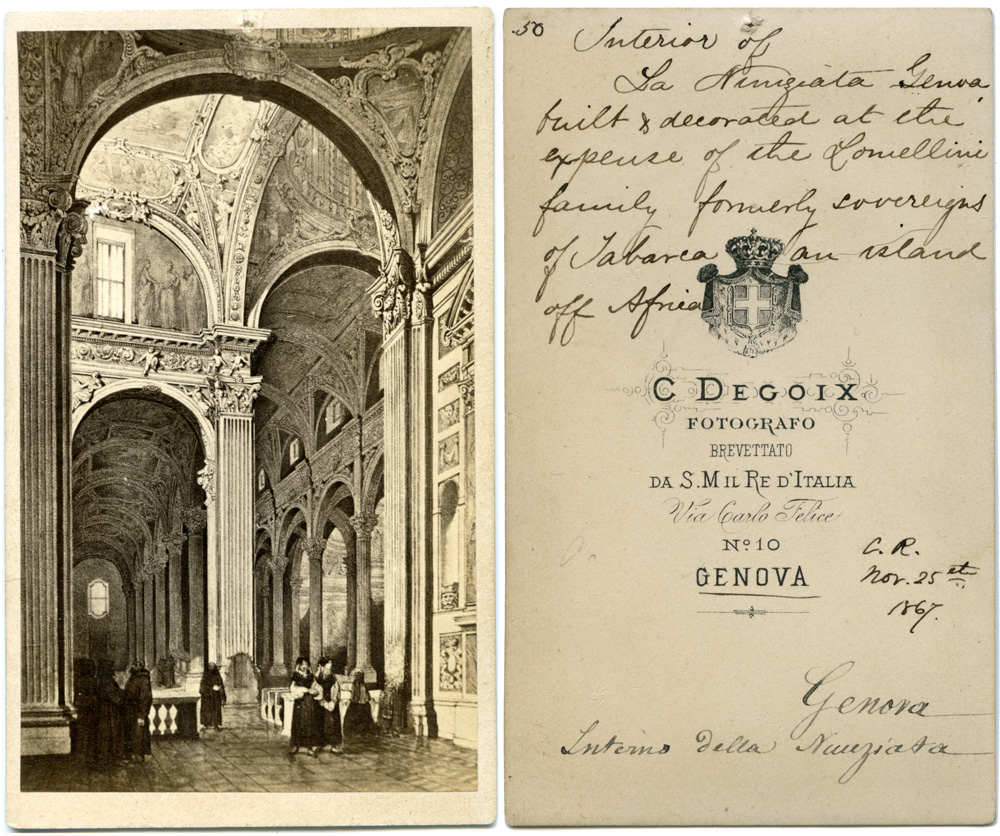 .50
Interior of
La Nunziata Genoa
built & decorated at the
expense of the Lomellini
family formerly sovereigns
of Tabarca an island
off Africa
C DEGOIX
FOTOGRAFO
BREVETTATO
DA S.M IL RE D'ITALIA
Via Carlo Felice
Nº 10
GENOVA
C. R.
Nov. 25 et
1867.
Genova
Interno della Nunziata